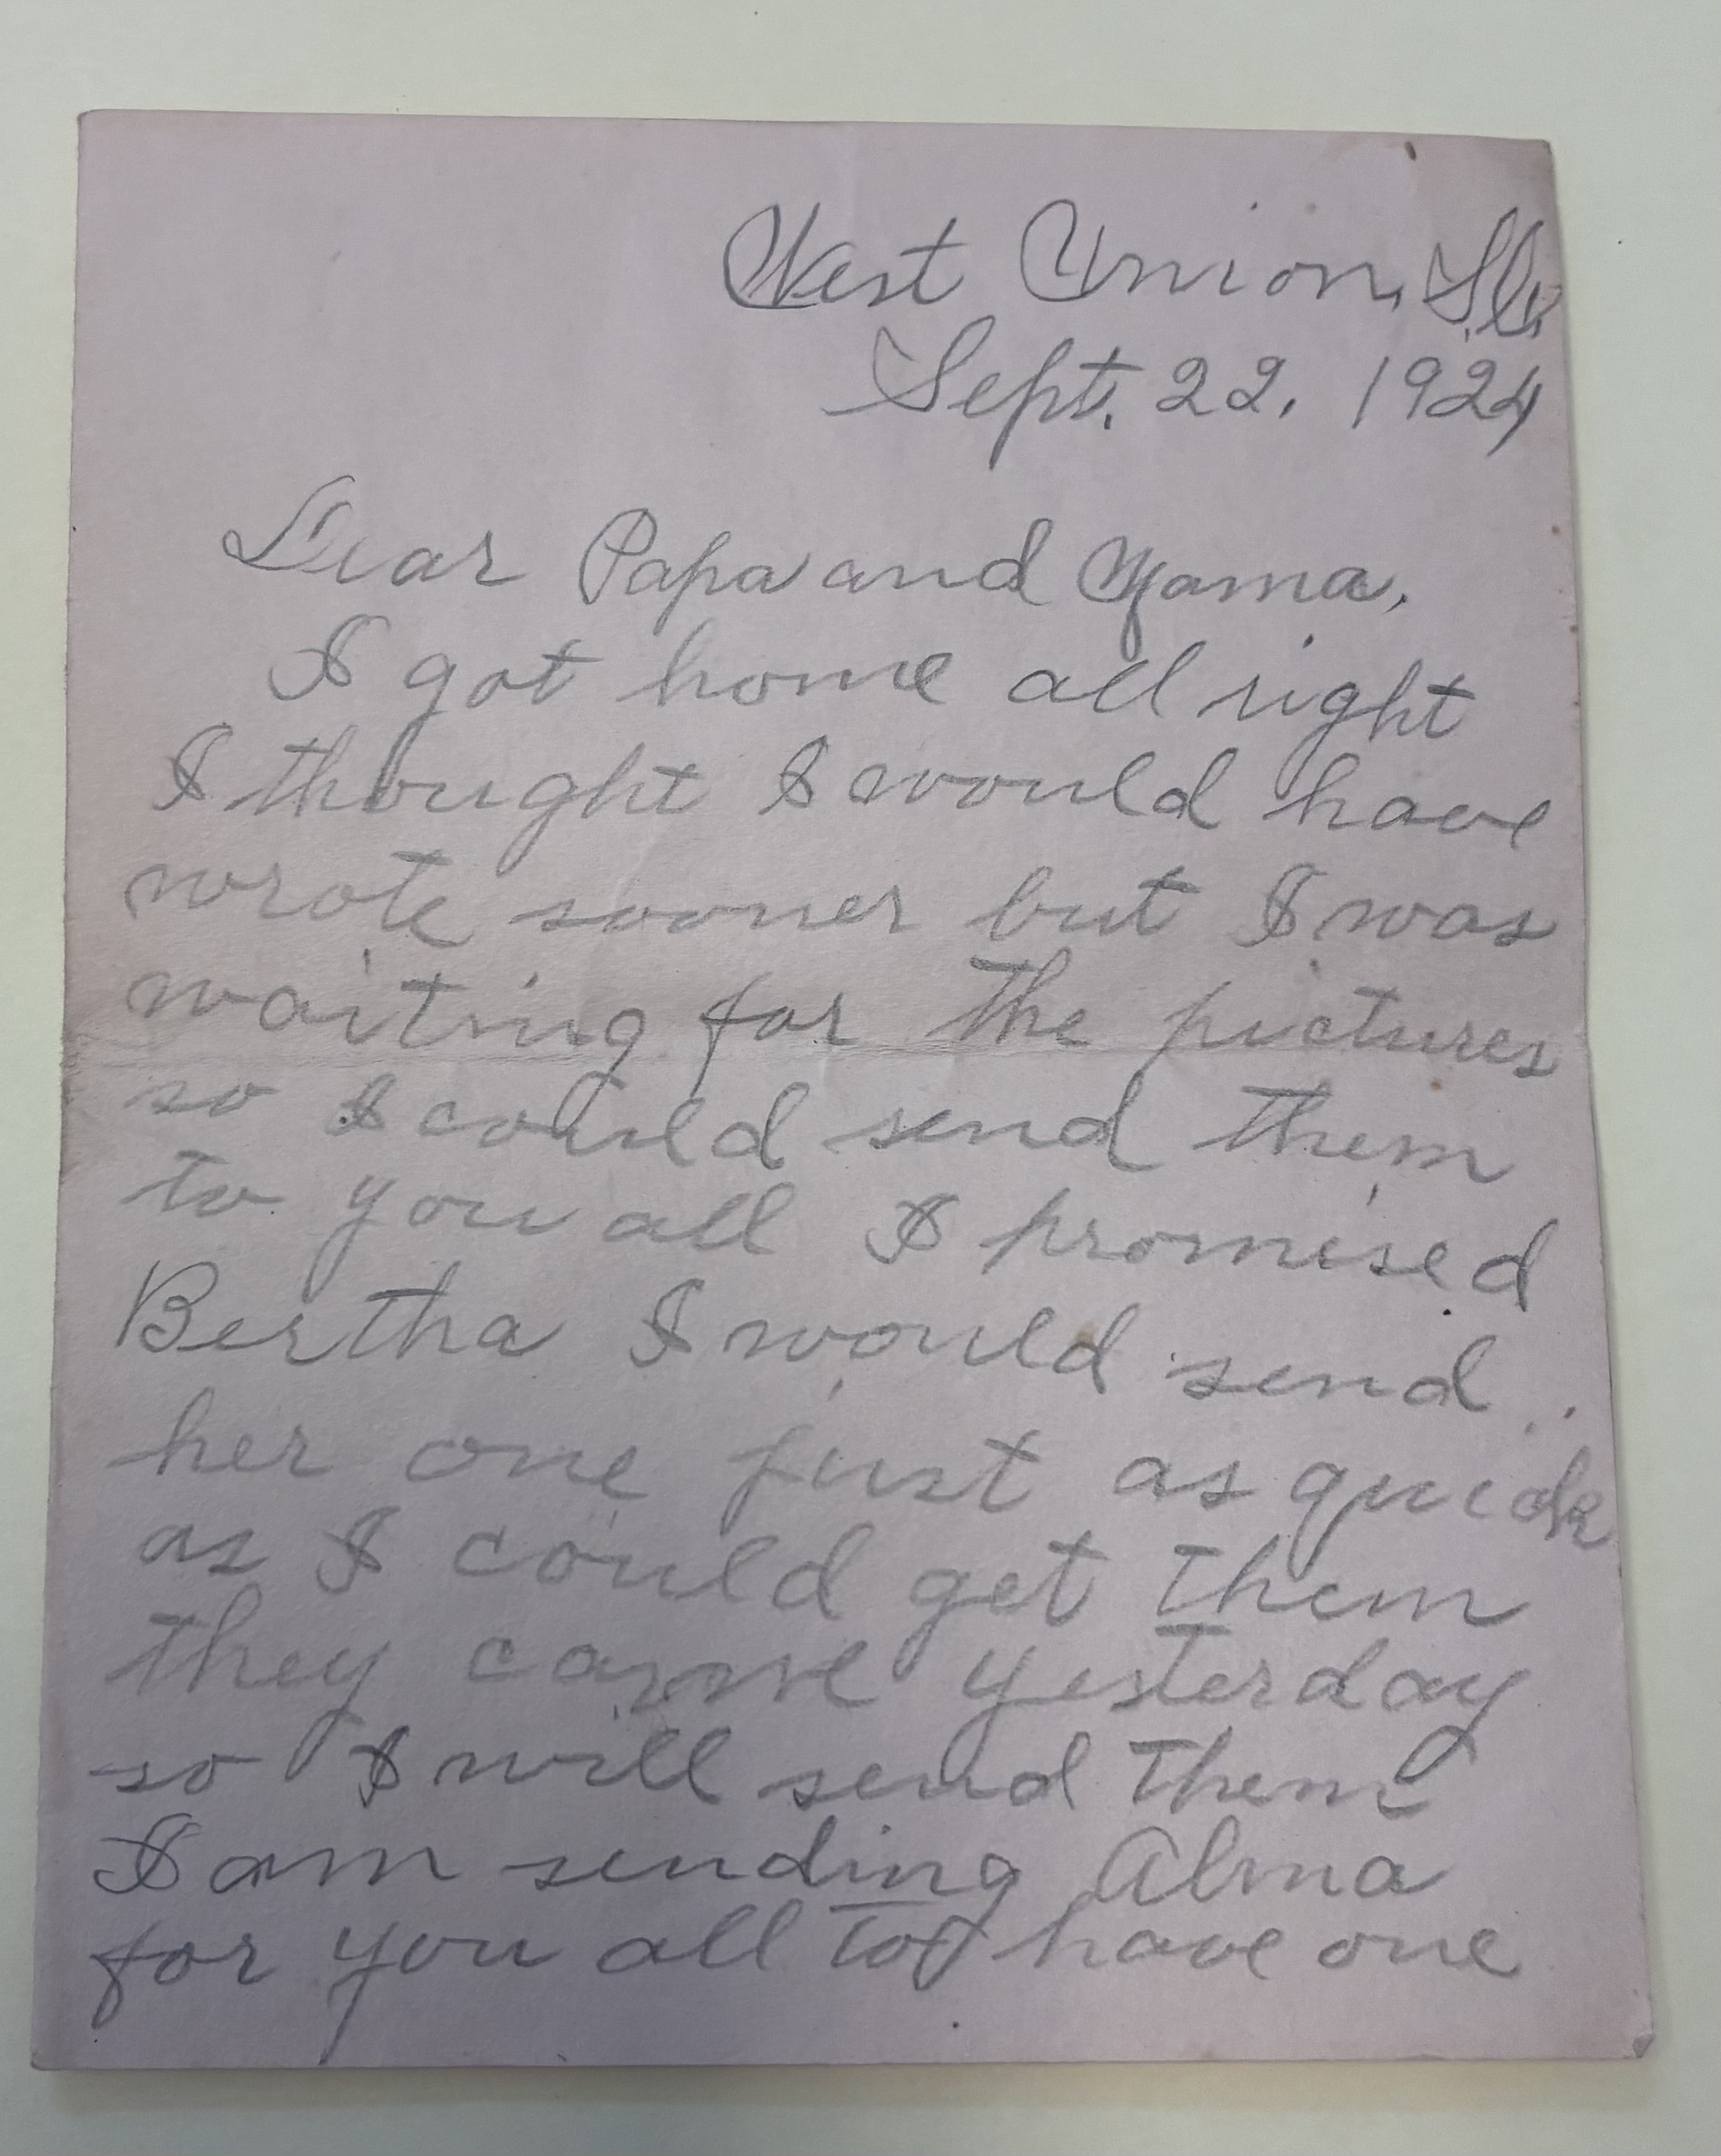 West Union, S.C.
Sept. 22. 1924
Dear Papa and Mama,
I got home all right
I thought I would have
wrote sooner but I was
waiting for the pictures
so I could send them
to you all I promised
Bertha I would send
her one just as quick
as I could get them
they came yesterday
so I will send them
I am sending Alma
for you all to have one